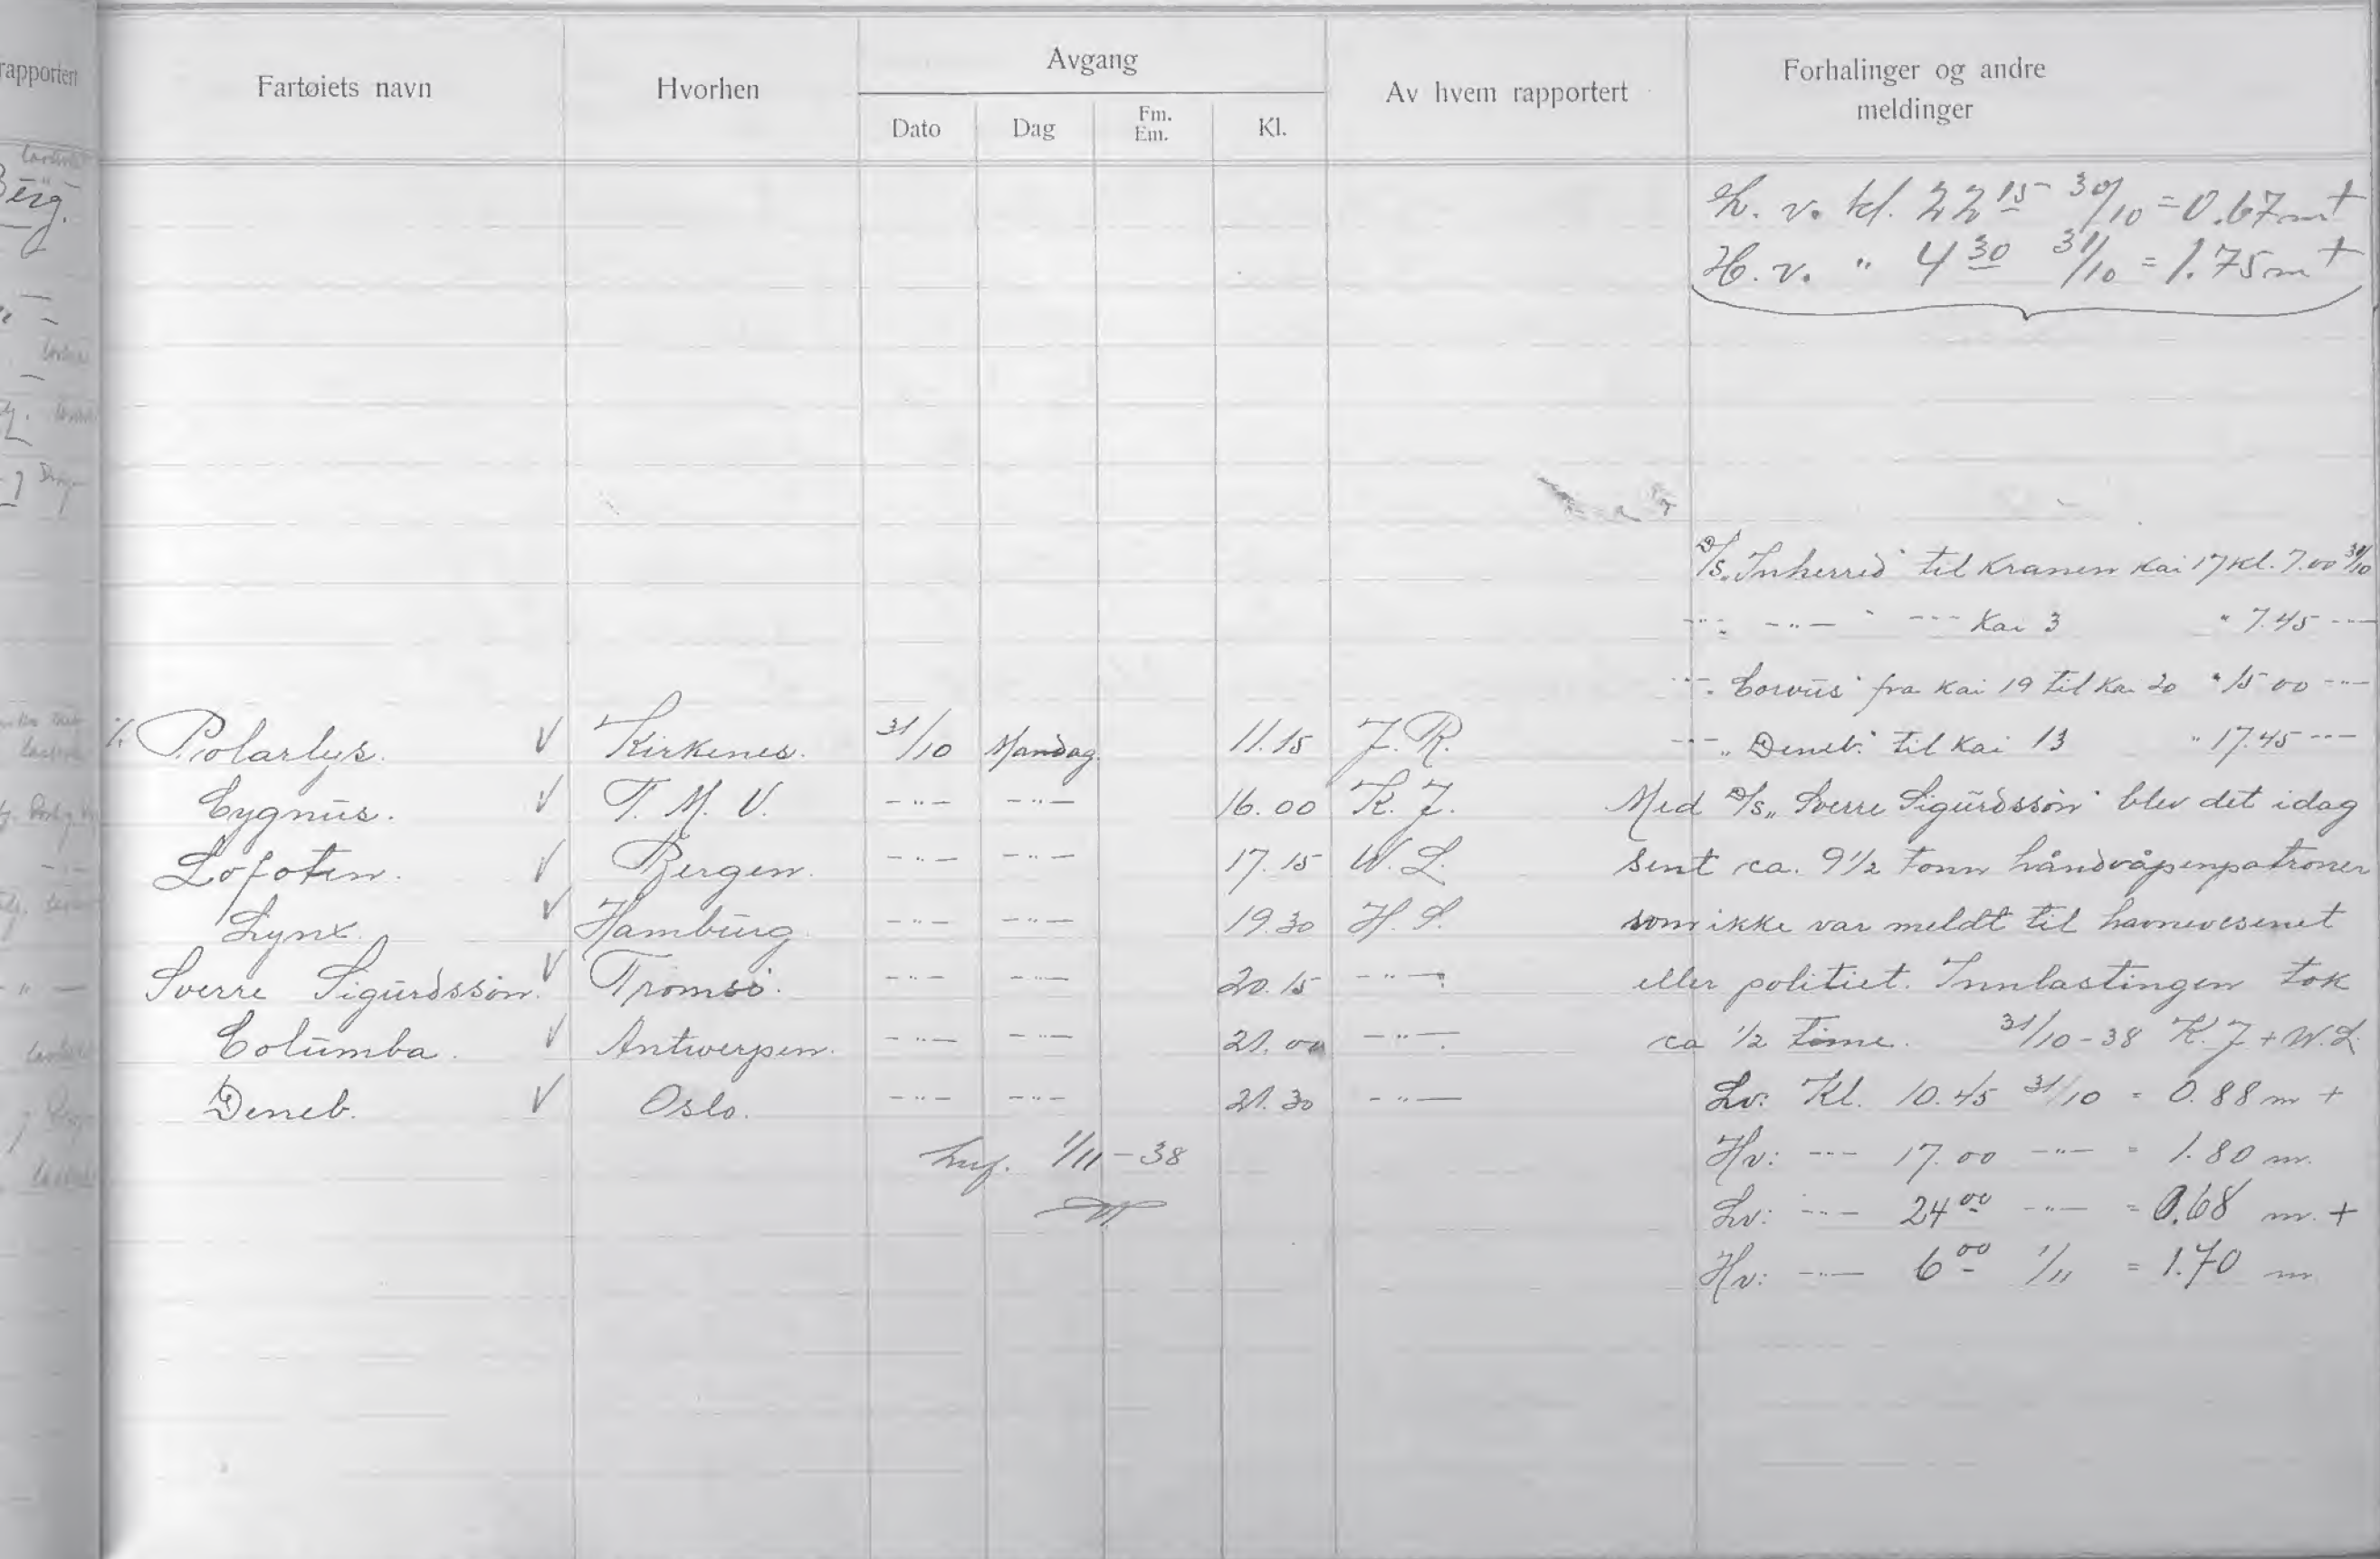 rapportert
Fartøiets navn Hvorhen Avgang Av hvem rapportert Forhalinger og andre
meldinger
Dato Dag Fm. Em. Kl.
L. v. kl. 22 15 30/10 = 0.67 m +
H. v. " 4 30 31/10 = 1.75 m +
D/S „Inherred" til Kranen Kai 17 Kl. 7.00 31/10
-"- -"- --- Kai 3 " 7.45 -"-
-"- „Corvus" fra Kai 19 til Kai 20 " 15 00 -"-
Polarlys. V Kirkenes. 31/10 Mandag. 11.15 J. R. -"- „Deneb." til Kai 13 " 17.45 -"-
Cygnus. V T. M. V. -"- -"- 16.00 K. J. Med D/S „Sverre Sigurdssøn" blev det idag
Lofoten. V Bergen. -"- -"- 17.15 W. L. sent ca. 9 1/2 tonn håndvåpenpatroner
Lynx. V Hamburg -"- -"- 19.30 H. S. som ikke var meldt til havnevesenet
Sverre Sigurdssøn. V Tromsö. -"- -"- 20.15 -"- eller politiet. Innlastingen tok
Columba. V Antwerpen. -"- -"- 21.00 -"- ca 1/2 time. 31/10-38 K. J + W. L.
Deneb. V Oslo. -"- -"- 21.30 -"- Lv: Kl. 10.45 31/10 = 0.88 m +
1/11-38 Hv: -"- 17.00 -"- = 1.80 m.
Lv: -"- 24 00 -"- = 0.68 m. +
Hv: -"- 6 00 1/11 = 1.70 m